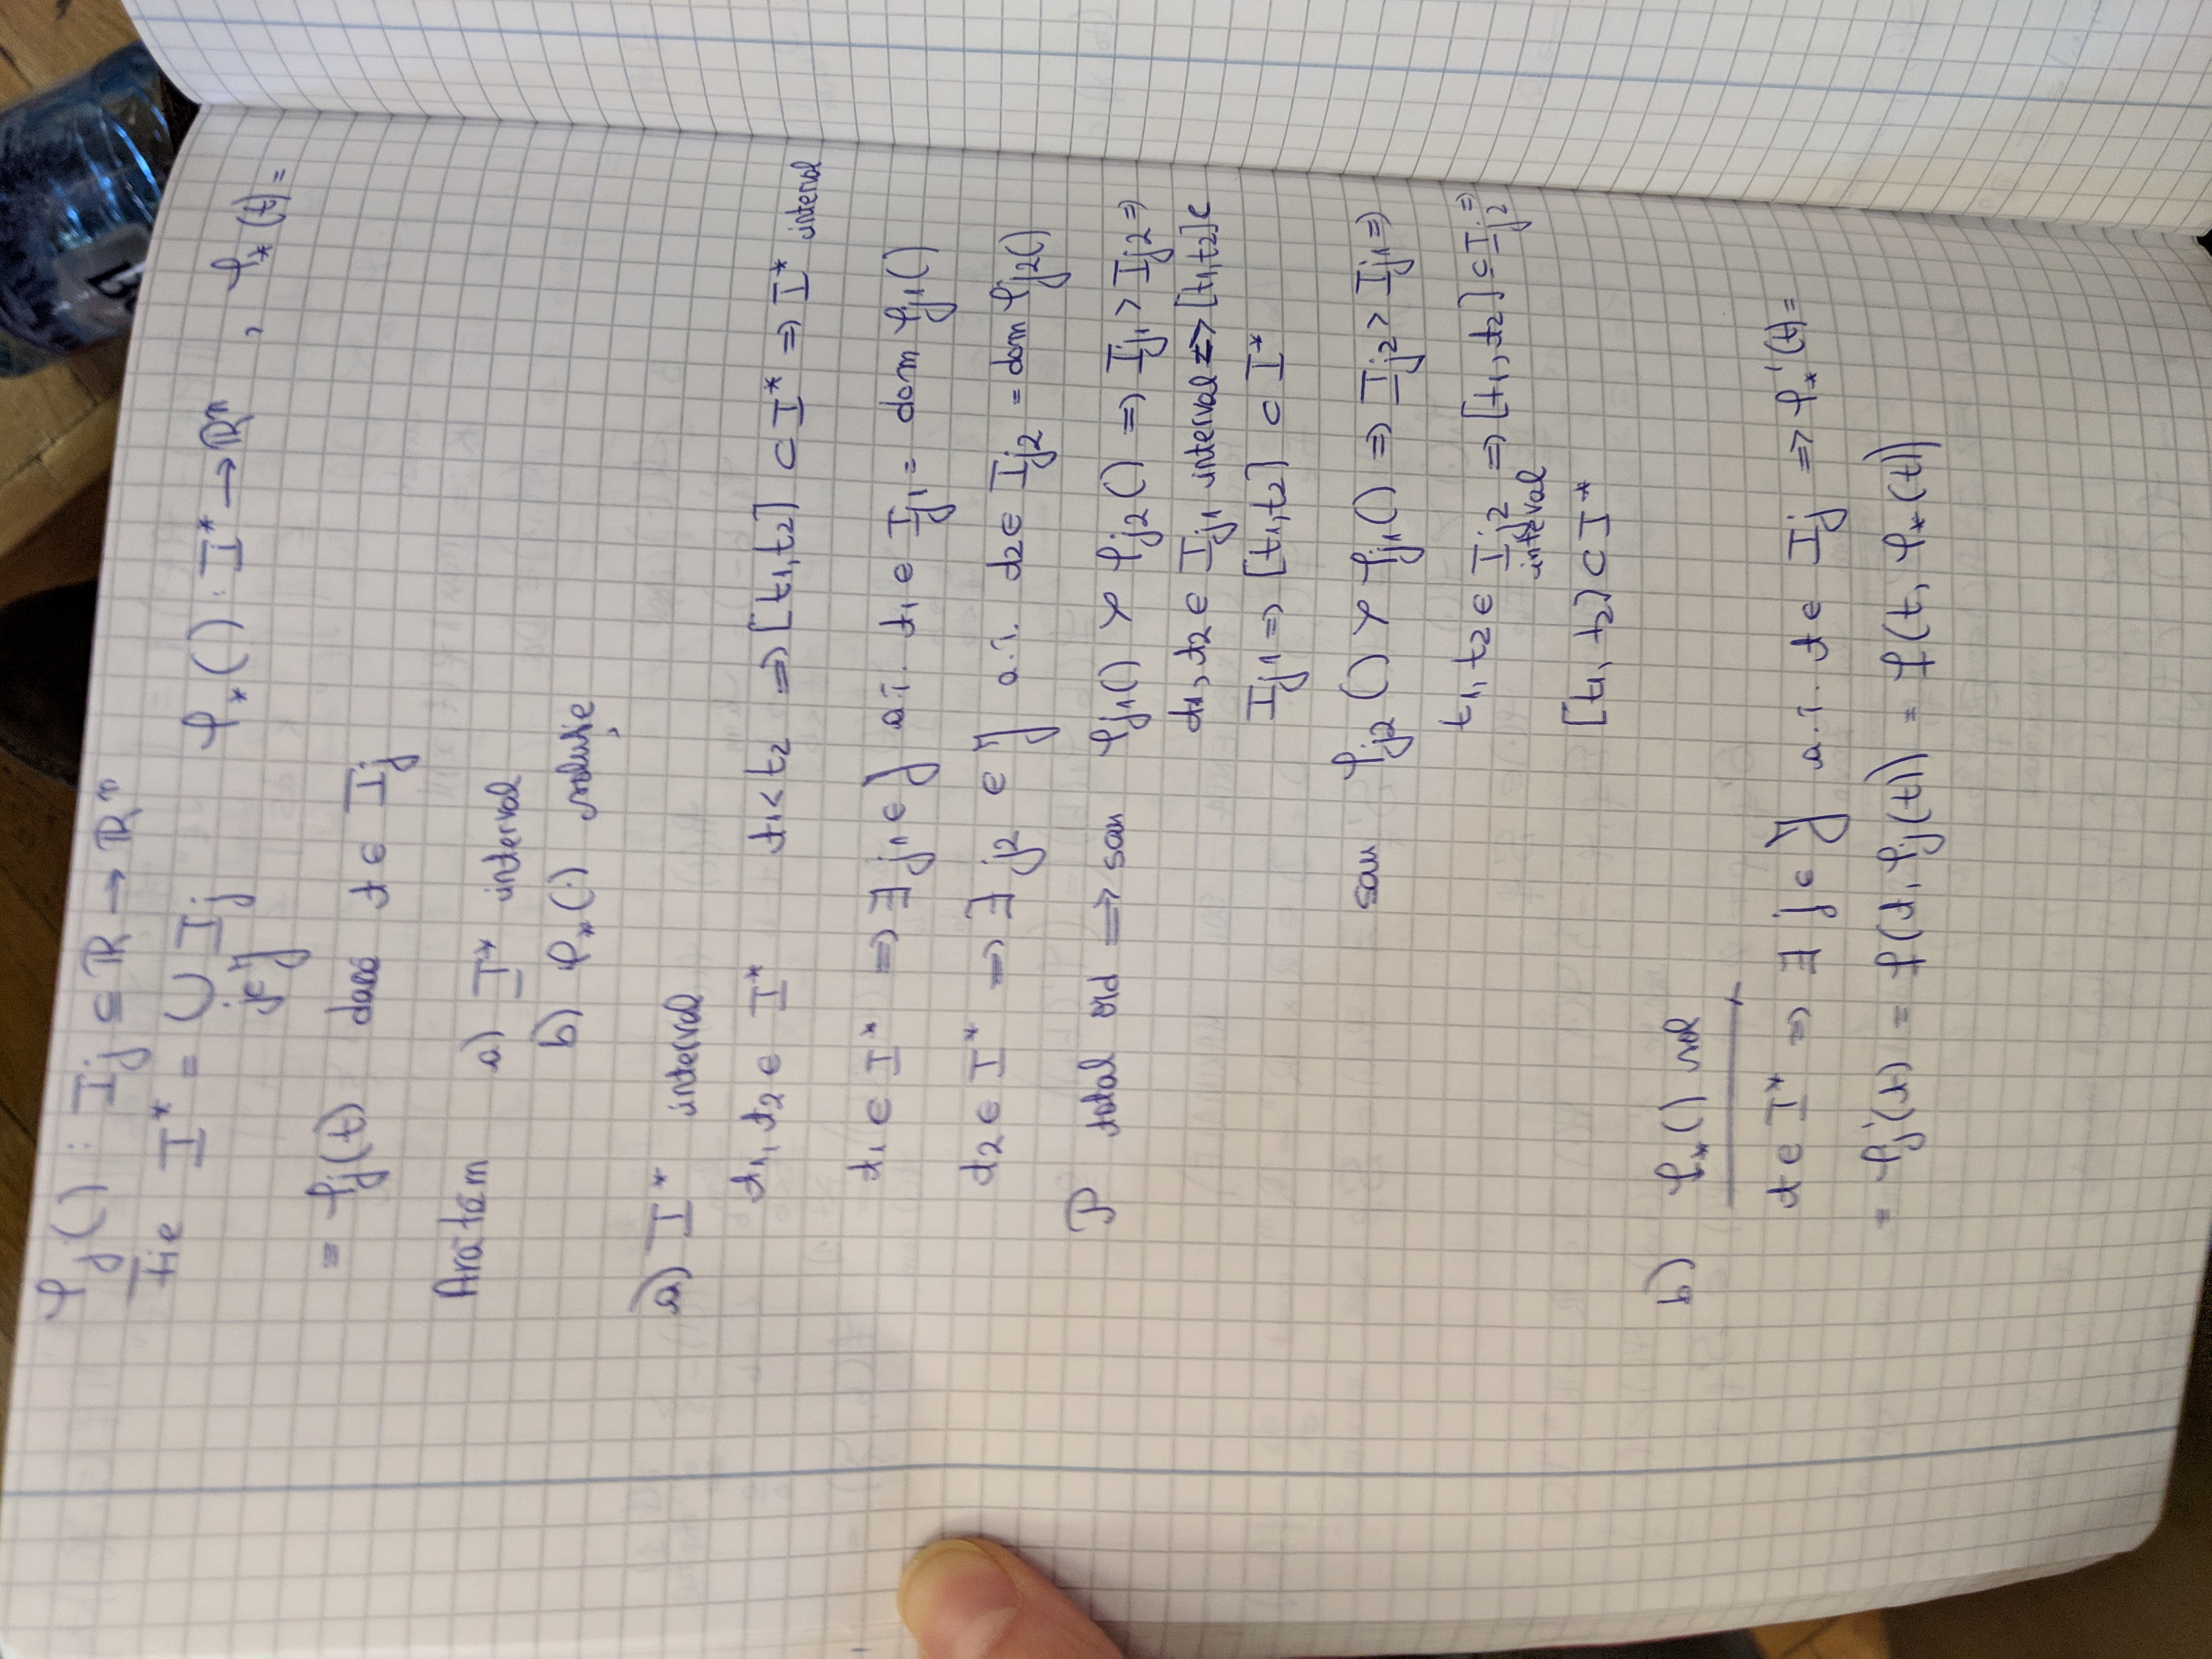 φj() : Ij ⊆ ℝ → ℝⁿ
Fie I* = ∪ Ij φ*() : I* → ℝⁿ , φ*(t) =
j∈J
= φj(t) dacă t ∈ Ij
Arătăm a) I* interval
b) φ*(·) soluție
a) I* interval
t1, t2 ∈ I* t1 < t2 ⇒ [t1,t2] ⊂ I* ⇒ I* interval
t1 ∈ I* ⇒ ∃ j1 ∈ J a.î. t1 ∈ Ij1 = dom φj1()
t2 ∈ I* ⇒ ∃ j2 ∈ J a.î. t2 ∈ Ij2 = dom φj2()
P total ord ⇒ sau φj1() ≻ φj2() ⇒ Ij1 > Ij2 ⇒
t1, t2 ∈ Ij1 interval => [t1,t2] ⊂
Ij1 ⇒ [t1,t2] ⊂ I*
sau φj2() ≻ φj1() ⇒ Ij2 > Ij1 ⇒
t1, t2 ∈ Ij2 ⇒ [t1, t2] ⊆ Ij2 ⇒
interval
[t1, t2] ⊂ I*
b) φ*() sol
t ∈ I* ⇒ ∃ j ∈ J a.î. t ∈ Ij ⇒ φ*'(t) =
= φj'(t) = f(t, φj(t)) = f(t, φ*(t))